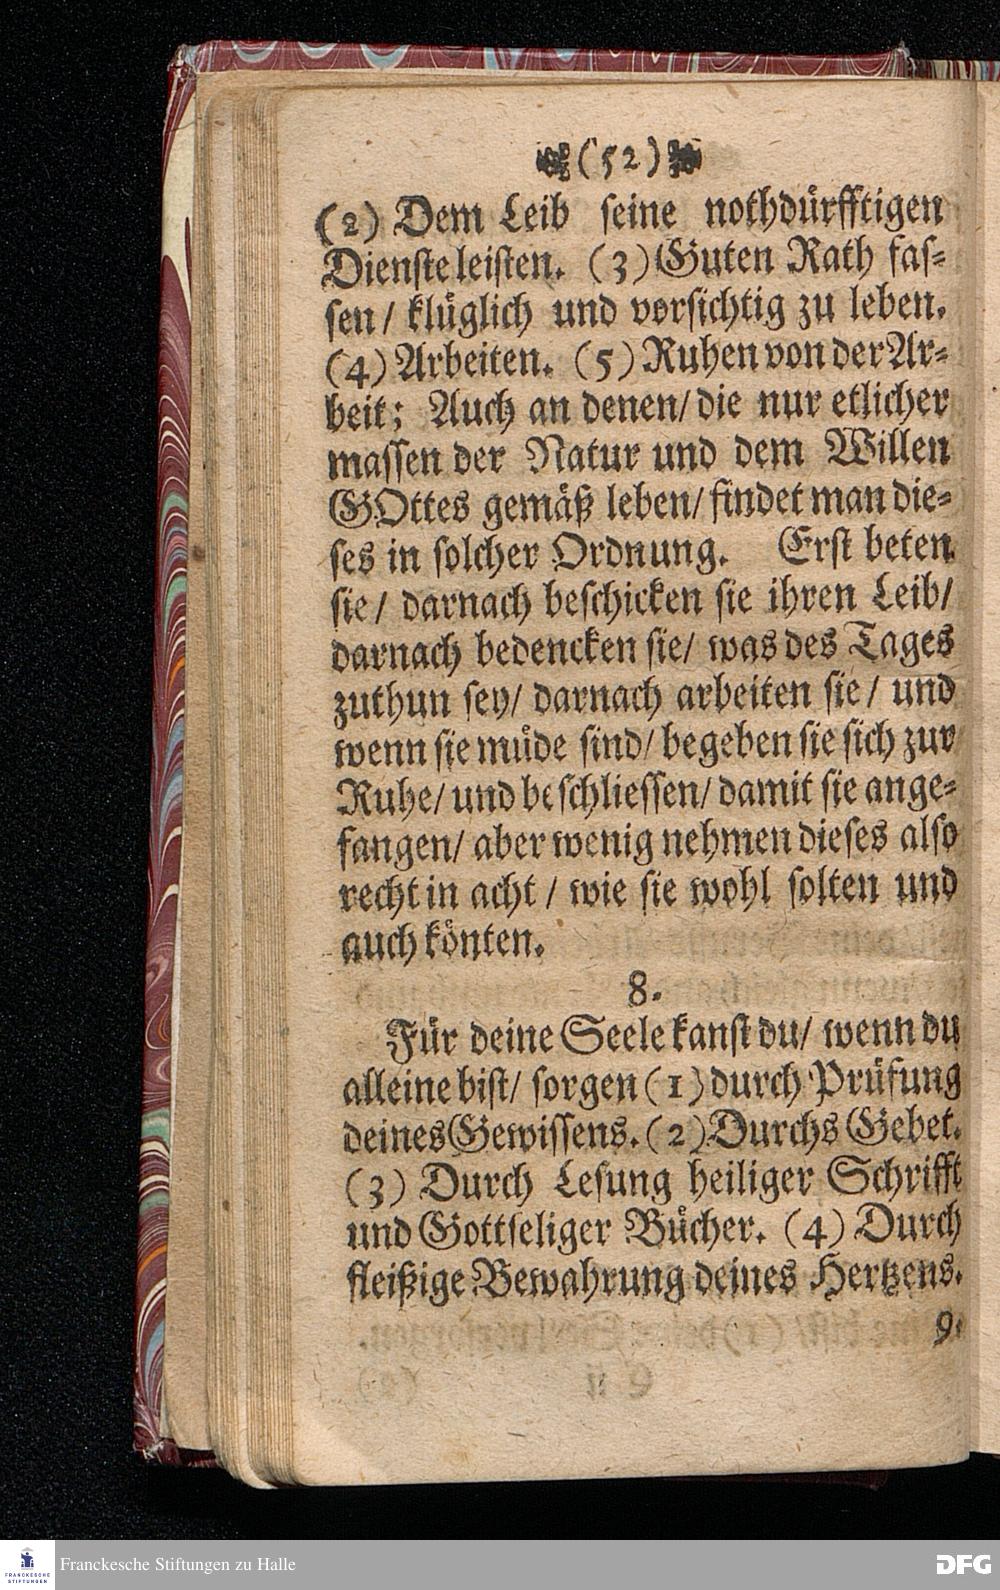 (52)
(2) Dem Leib seine nothdürfftigen
Dienste leisten. (3) Guten Rath fas-
sen / klüglich und vorsichtig zu leben.
(4) Arbeiten. (5) Ruhen von der Ar-
beit; Auch an denen/ die nur etlicher
massen der Natur und dem Willen
GOttes gemäß leben/ findet man die-
ses in solcher Ordnung. Erst beten
sie / darnach beschicken sie ihren Leib/
darnach bedencken sie/ was des Tages
zuthun sey/ darnach arbeiten sie / und
wenn sie müde sind/ begeben sie sich zur
Ruhe/ und beschliessen/ damit sie ange-
fangen/ aber wenig nehmen dieses also
recht in acht / wie sie wohl solten und
auch könten.
8.
Für deine Seele kanst du/ wenn du
alleine bist/ sorgen (1) durch Prüfung
deines Gewissens. (2) Durchs Gebet.
(3) Durch Lesung heiliger Schrifft
und Gottseliger Bücher. (4) Durch
fleißige Bewahrung deines Hertzens.
9.
FRANCKESCHE STIFTUNGEN
Franckesche Stiftungen zu Halle
DFG